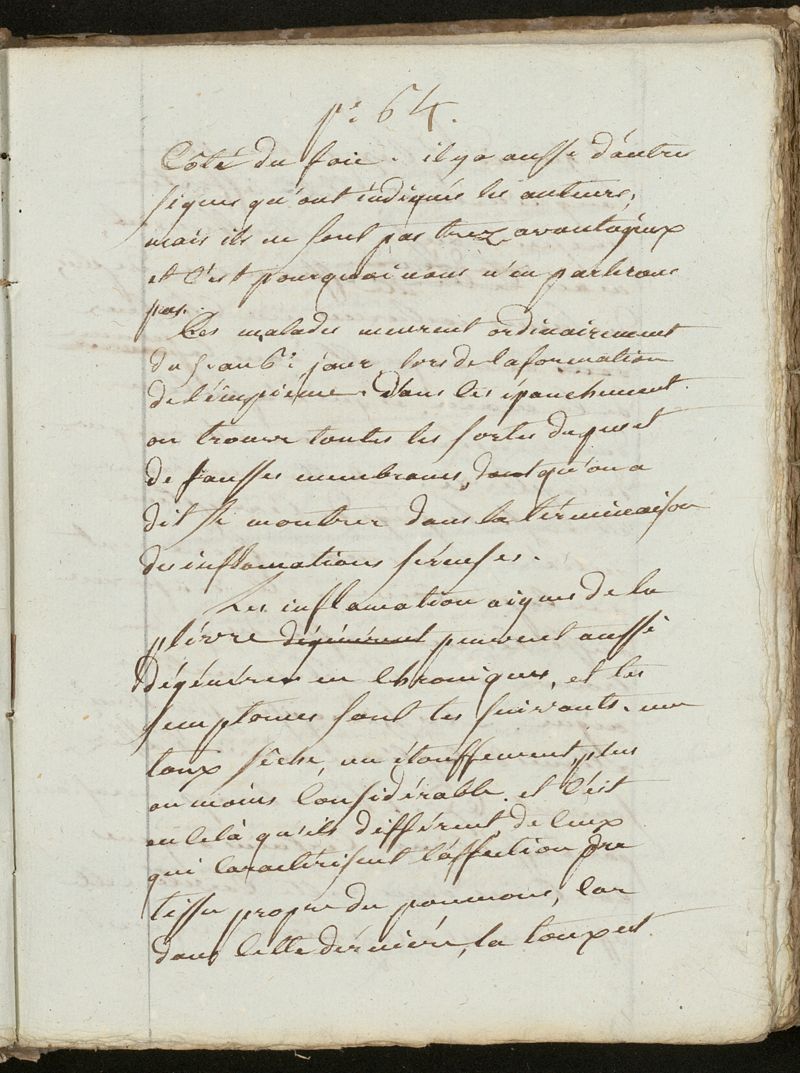 pe. 64.
Côté du foie. il y a aussi d'autres
signes qu'ont indiqués les auteurs,
mais ils ne sont pas trez avantageux
et c'est pourquoi nous n'en parlerons
pas.
Les malades meurent ordinairement
du 5 au 6e jour, lors de la formation
de l'empième. Dans les épanchement
on trouve toutes les sortes de pus et
de fausses membranes, dont qu'on a
dit se montrer dans la términaison
des inflamations séreuses.
Les inflamation aigues de la
plèvre dégénérent peuvent aussi
dégénérer en chroniques, et les
semptomes sont les suivants. une
toux sêche, un étouffement, plus
ou moins considérable. et c'est
en celà qu'ils différent de ceux
qui caractérisent l'affection du
tissu propre du poumons, car
dans cette dérnière, la toux est